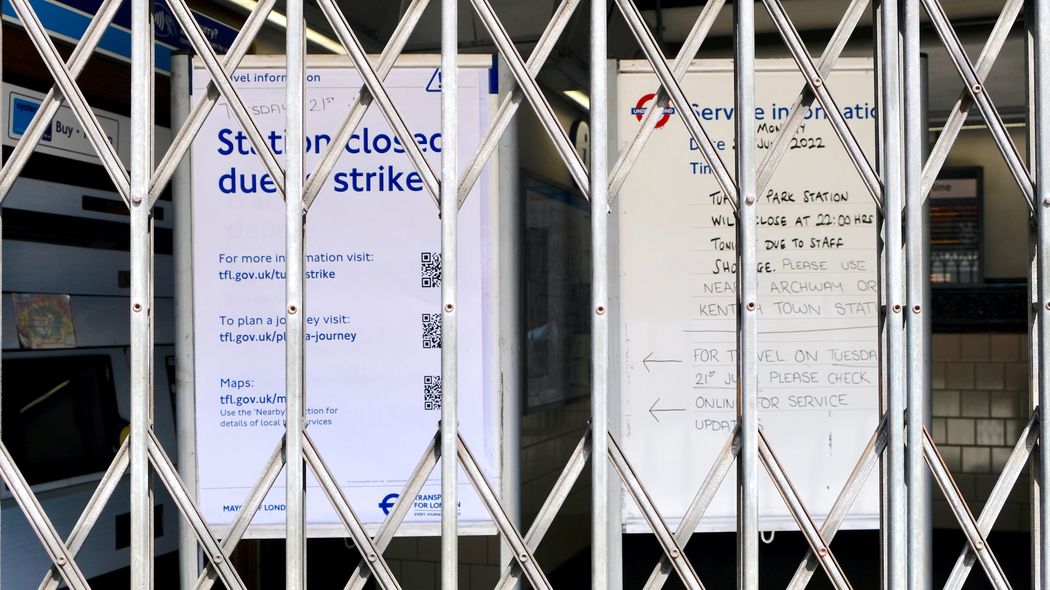 Buy
Travel information
TUESDAY 21ST
Station closed
due to strike
For more information visit:
tfl.gov.uk/tube-strike
To plan a journey visit:
tfl.gov.uk/plan-a-journey
Maps:
tfl.gov.uk/maps
Use the 'Nearby' function for
details of local bus services
MAYOR OF LONDON
TRANSPORT
FOR LONDON
EVERY JOURNEY
UNDERGROUND
Service information
MONDAY
Date July 2022
Time
TUFNELL PARK STATION
WILL CLOSE AT 22:00 HRS
TONIGHT DUE TO STAFF
SHORTAGE. PLEASE USE
NEARBY ARCHWAY OR
KENTISH TOWN STATION
FOR TRAVEL ON TUESDAY
21ST PLEASE CHECK
ONLINE FOR SERVICE
UPDATES